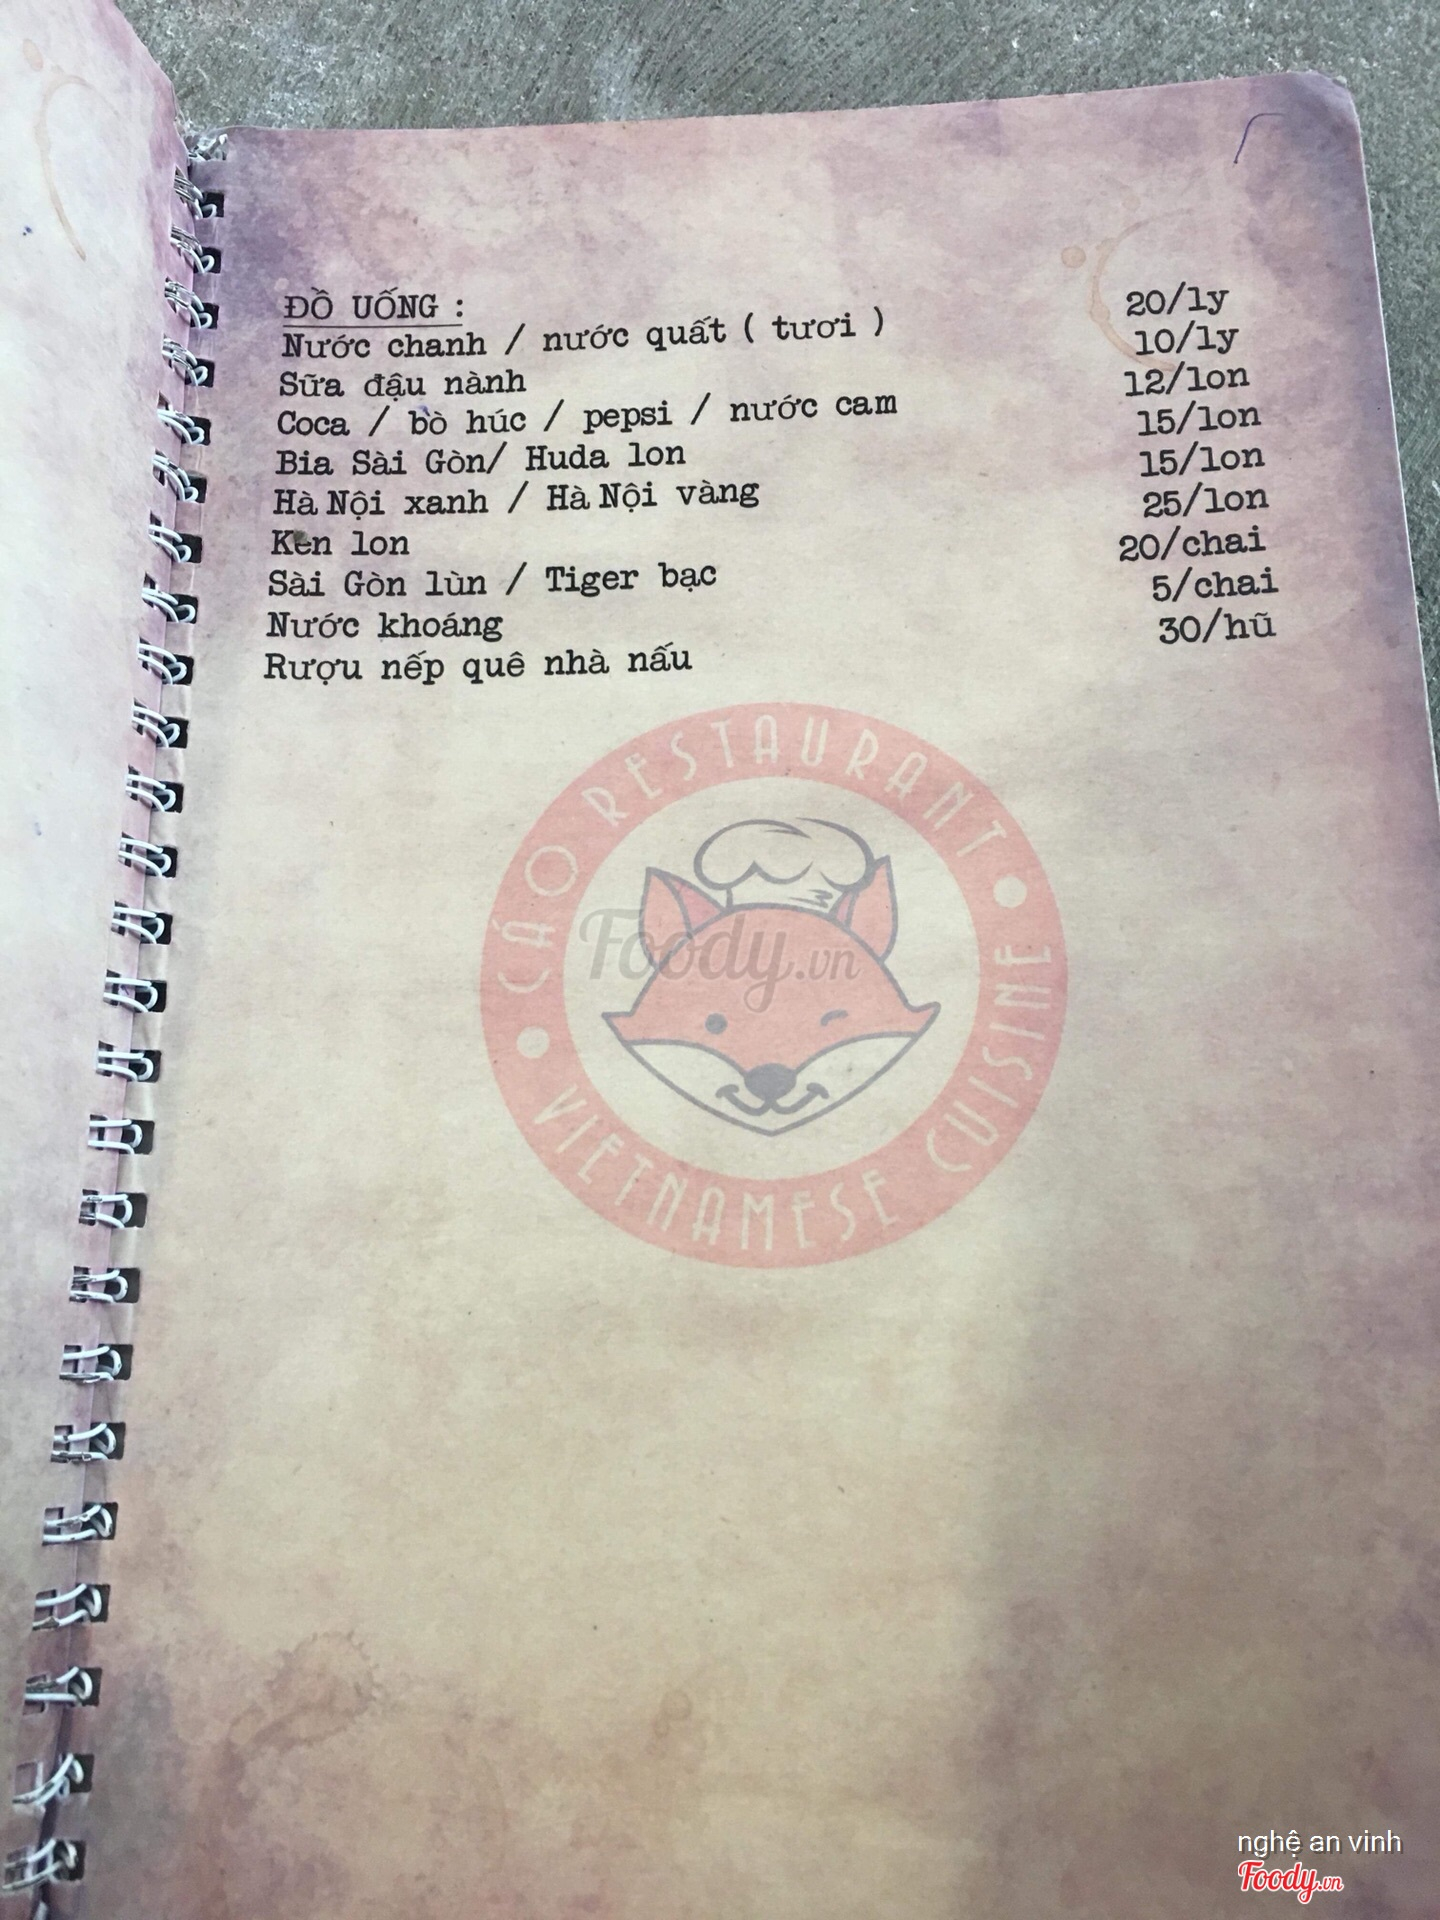 ĐỒ UỐNG :
Nước chanh / nước quất ( tươi ) 20/ly
Sữa đậu nành 10/ly
Coca / bò húc / pepsi / nước cam 12/lon
Bia Sài Gòn/ Huda lon 15/lon
Hà Nội xanh / Hà Nội vàng 15/lon
Ken lon 25/lon
Sài Gòn lùn / Tiger bạc 20/chai
Nước khoáng 5/chai
Rượu nếp quê nhà nấu 30/hũ
CÁO RESTAURANT
VIETNAMESE CUISINE
Foody.vn
nghệ an vinh
Foody.vn